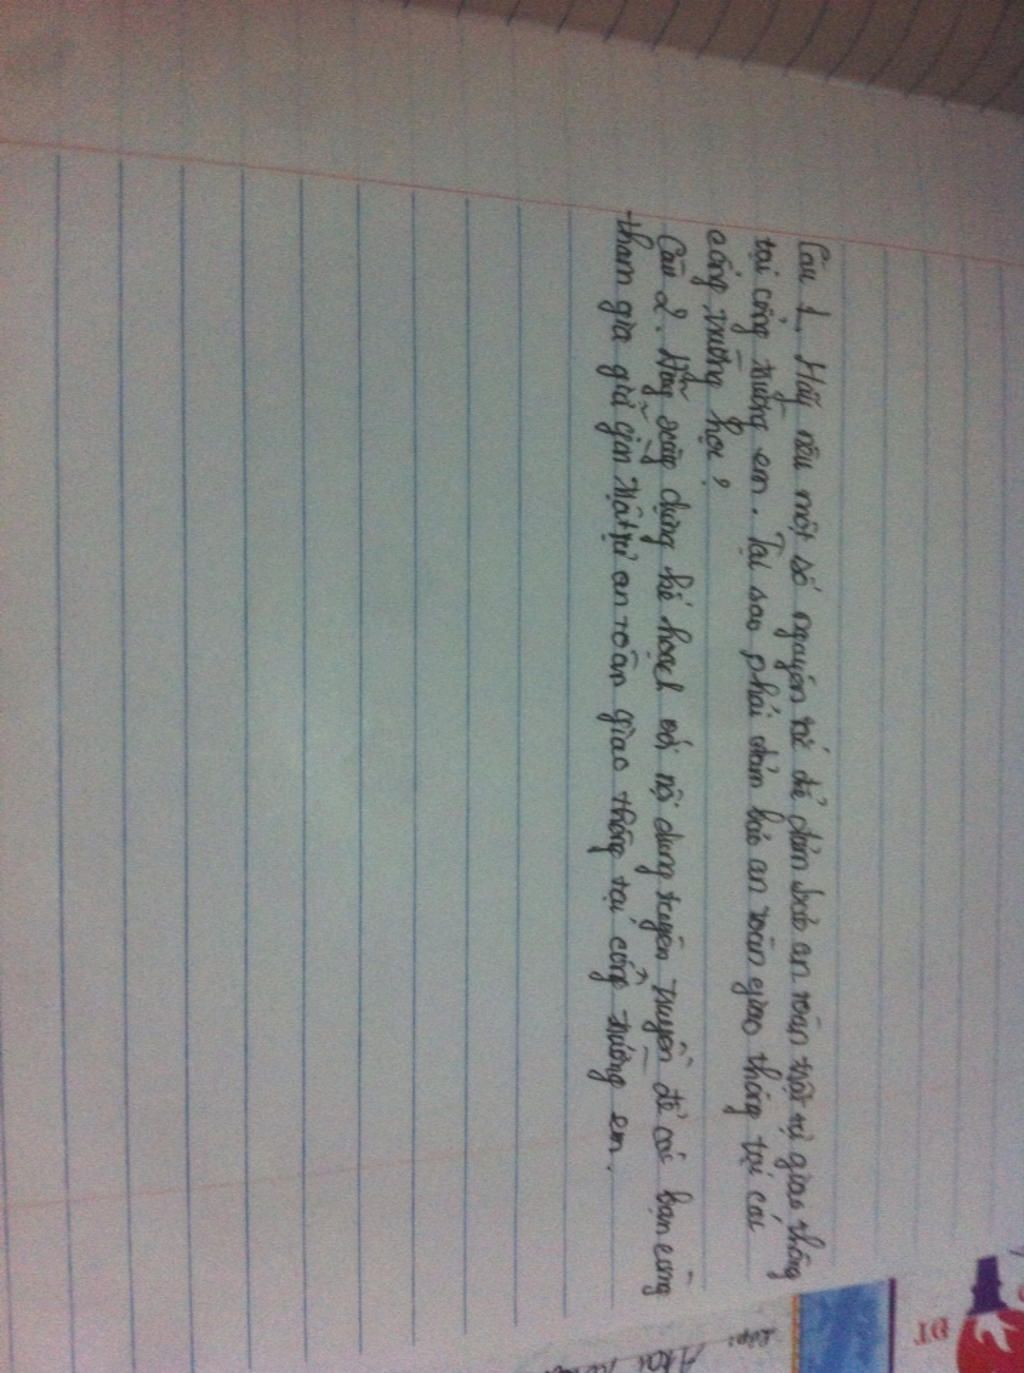 Câu 1. Hãy nêu một số nguyên tắc để đảm bảo an toàn trật tự giao thông
tại cổng trường em. Tại sao phải đảm bảo an toàn giao thông tại các
cổng trường học?
Câu 2. Hãy xây dựng kế hoạch với nội dung tuyên truyền để các bạn cùng
tham gia giữ gìn trật tự an toàn giao thông tại cổng trường em.
ĐT
Lớp: